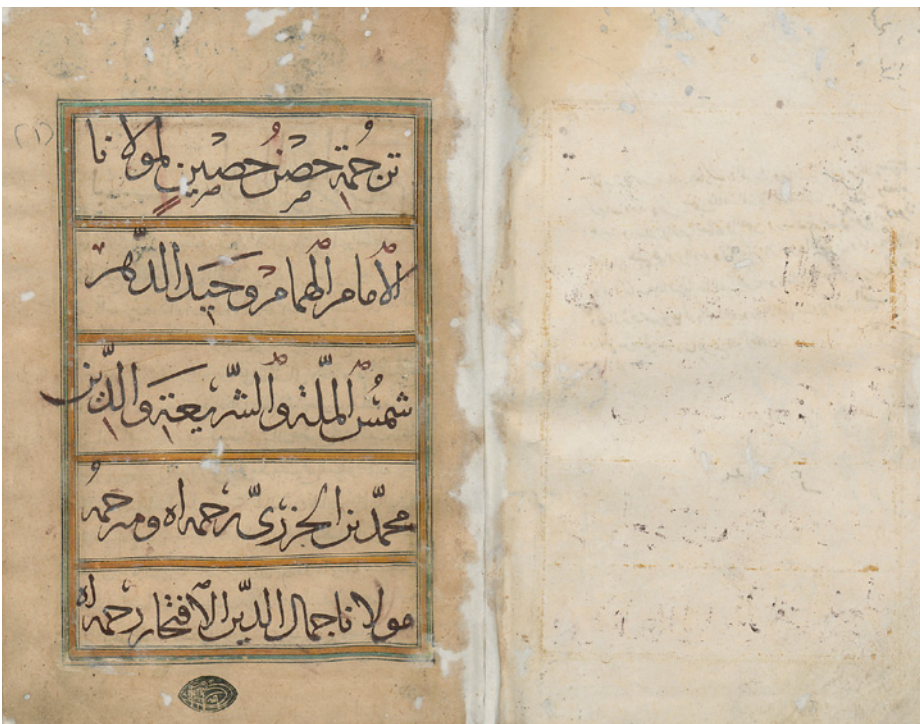 (١)
ترجمة حِصْنُ حُصَينِ لمولانا
الاْمامِ الهُمامِ وَحَيَدالدَّهْرِ
شمسُ المِلّة والشّريعَة وَالدِّين
محمّد بن الجزرىّ رحمه اه ومترجمهُ
مولانا جمال الدّين الافتخار رحمه اه